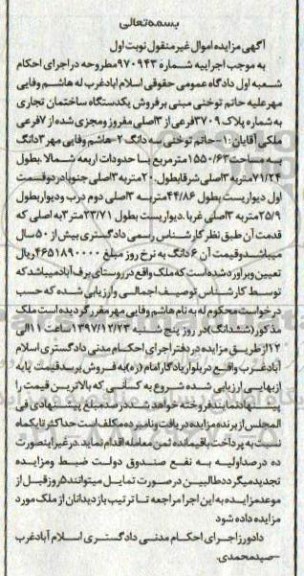 بسمه‌تعالی
آگهی مزایده اموال غیر منقول نوبت اول
به موجب اجراییه شماره ۹۷۰۹۴۳مطروحه در اجرای احکام
شعبه اول دادگاه عمومی حقوقی اسلام ابادغرب له هاشم وفایی
مهر علیه حاتم توخنی مبنی بر فروش یکدستگاه ساختمان تجاری
به شماره پلاک ۳۷۰۹فرعی از ۳اصلی مفروز ومجزی شده از ۷فرعی
ملکی آقایان: ۱-حاتم توخنی سه دانگ ۲-هاشم وفایی مهر ۳دانگ
به مساحت ۱۵۵۰/۶۳مترمربع با حدودات اربعه شمالا .بطول
۷۱/۲۴متربه ۳اصلی شرقابطول .۲۰متربه ۳اصلی جنوبادر دوقسمت
اول دیواریست بطول ۴۴/۸۶متربه ۳اصلی دوم درب ودیواربطول
۲۵/۹متربه ۳اصلی غربا .دیواریست بطول ۲۳/۷۱متر۳به اصلی که
قدمت آن طبق نظر کارشناس رسمی دادگستری بیش از ۵۰سال
میباشدوقیمت آن ۶دانگ به نرخ روز مبلغ ۴۶۵۱۸۹۰۰۰۰ریال
تعیین وبرآورد شده‌است که ملک واقع در روستای برف آبادمیباشد که
توسط کارشناس توصیف اجمالی وارزیابی شده که حسب
درخواست محکوم له به نام هاشم وفایی مهر مقرر گردیده است ملک
مذکور(ششدانگ)در روز پنج شنبه ۱۳۹۷/۱۲/۲۳ساعت ۱۱الی
۱۲از طریق مزایده در دفتر اجرای احکام مدنی دادگستری اسلام
آبادغرب واقع در بلوار یادگار امام (ره)به فروش برسدقیمت پایه
ازبهایی ارزیابی شده شروع به کسانی که بالاترین قیمت را
پیشنهادنمایندفروخته خواهد شد‌ده درصد مبلغ پیشنهادی فی
المجلس از برنده مزایده دریافت ونامبرده مکلف است حداکثر تا یکماه
نسبت به پرداخت باقیمانده ثمن معامله اقدام نماید.درغیراینصورت
ده درصداولیه به نفع صندوق دولت ضبط ومزایده
تجدیدمیگرددطالبین در صورت تمایل میتوانند۵روزقبل از
موعدمزایده به این اجرا مراجعه تا ترتیب بازدیدانان از ملک مورد
مزایده داده شود
دادورزاجرای احکام مدنی دادگستری اسلام آبادغرب
-صیدمحمدی.